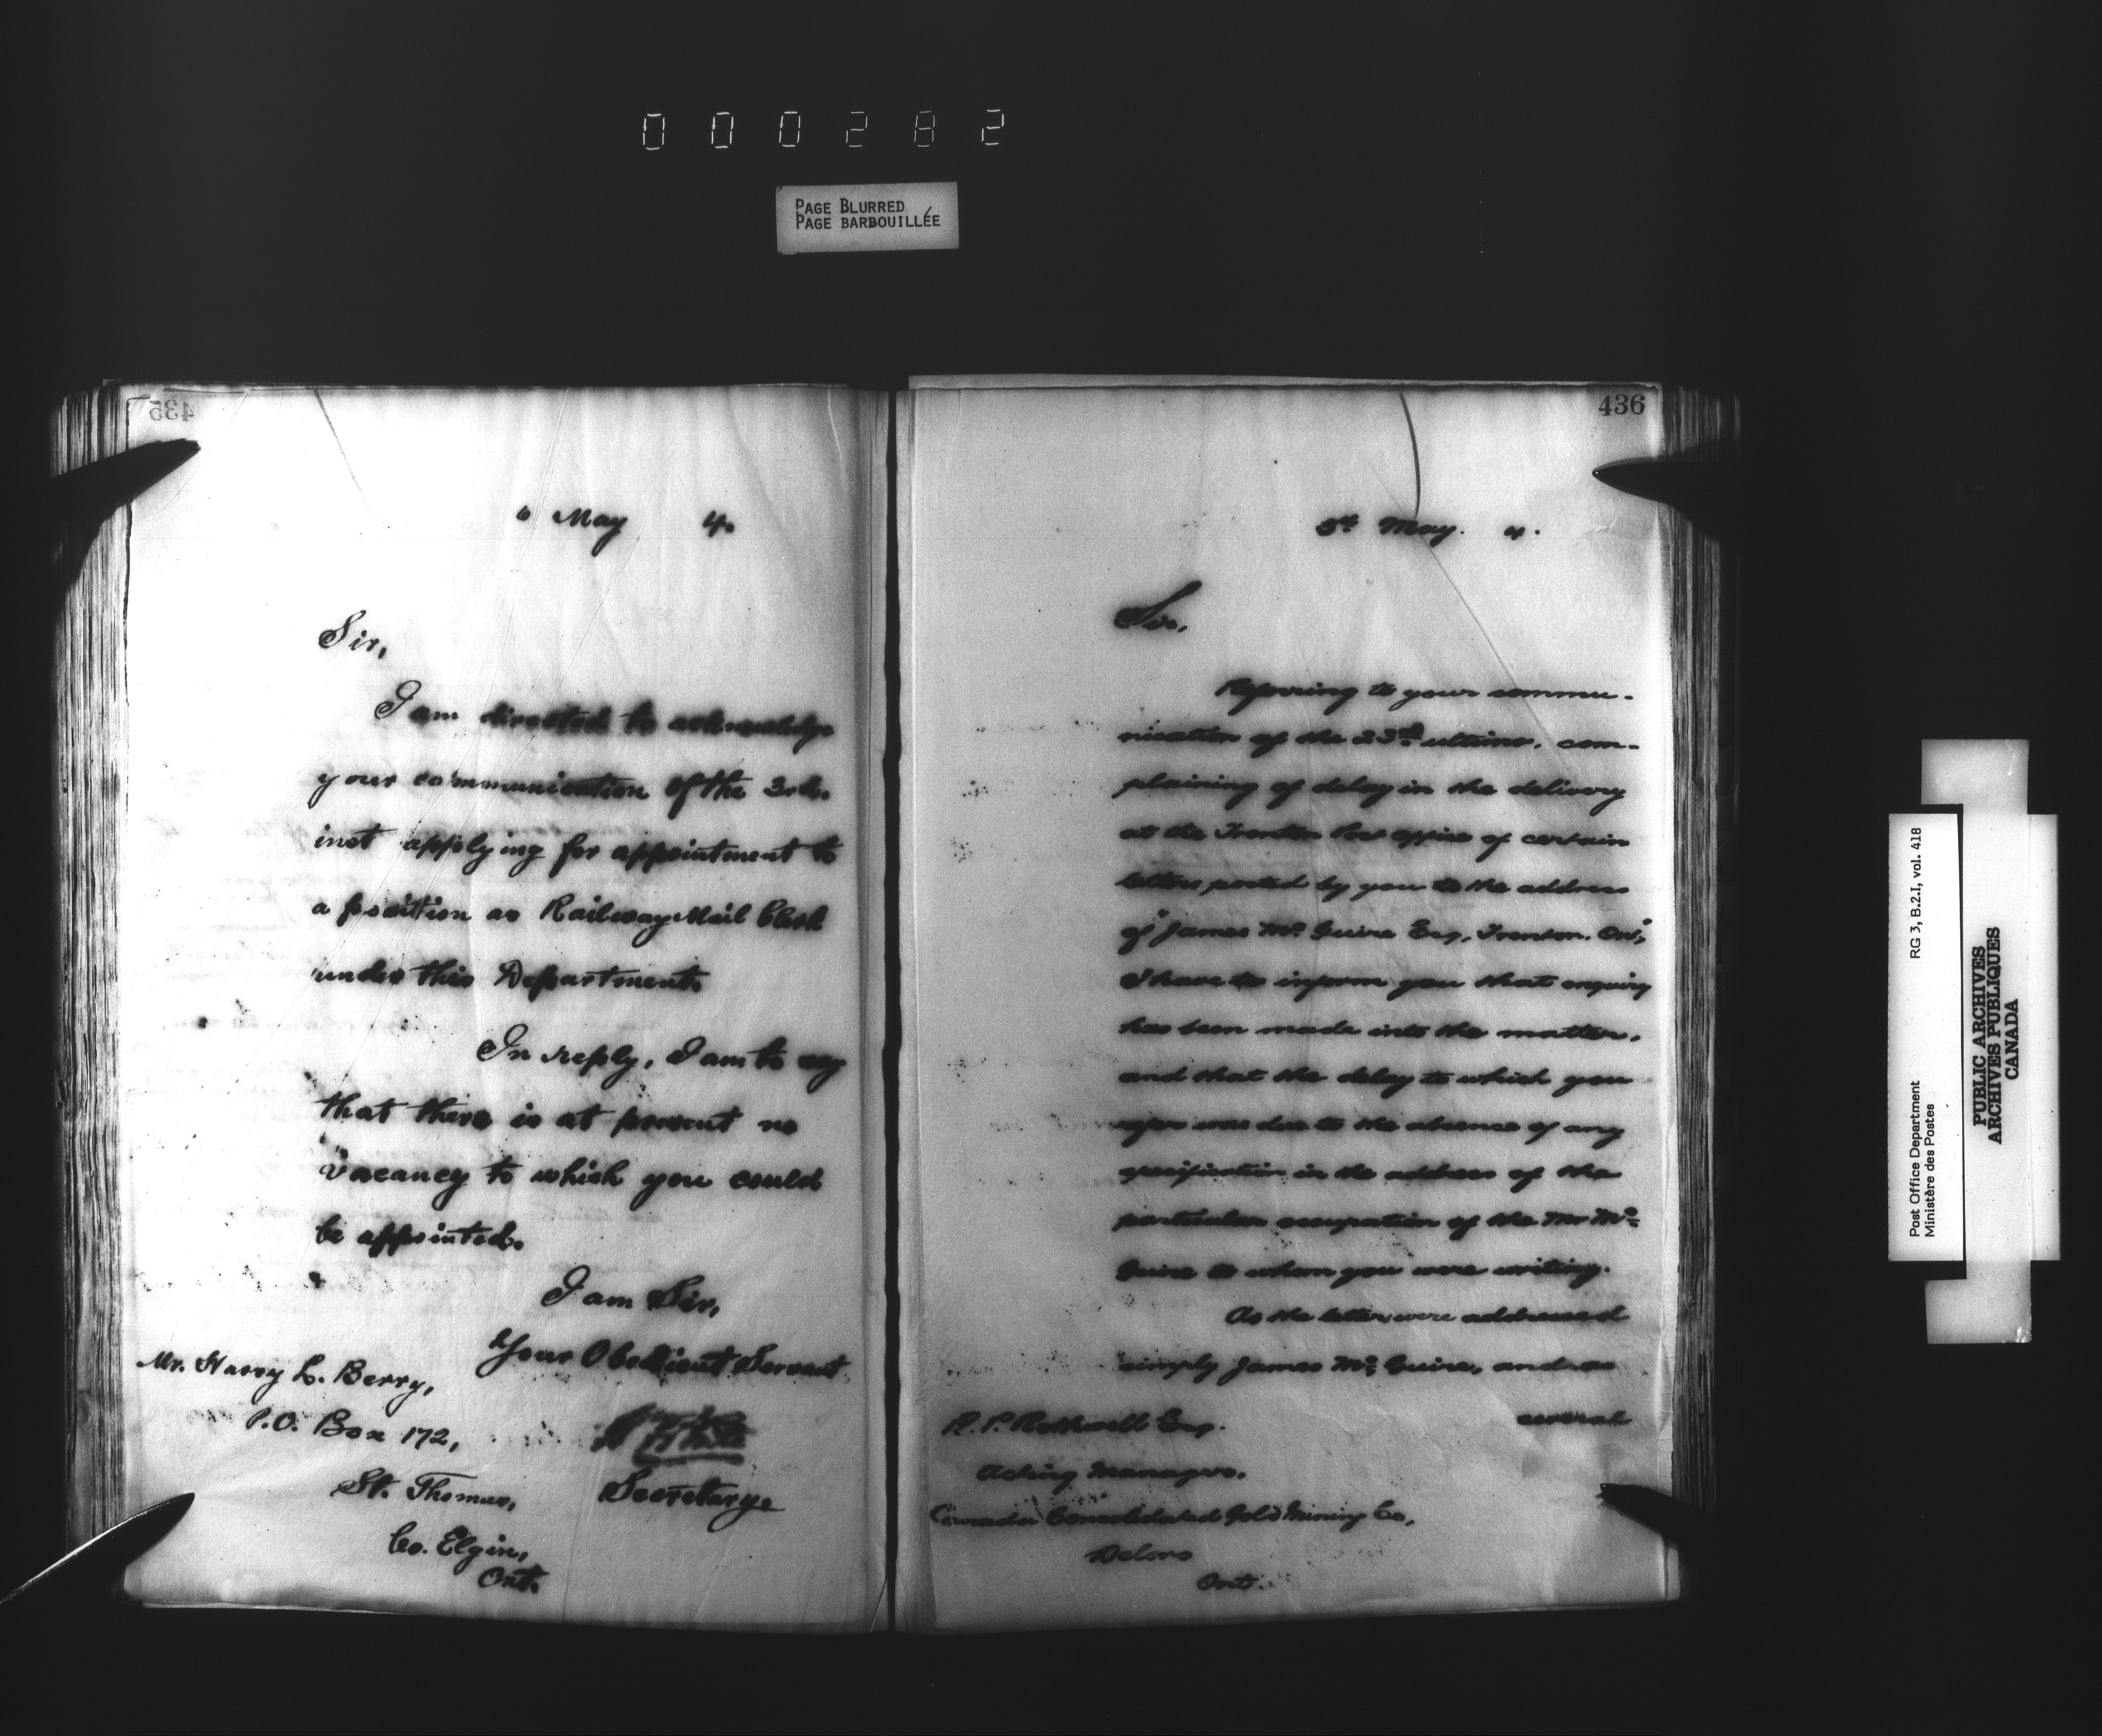 000282
PAGE BLURRED
PAGE BARBOUILLÉE
435
6 May 4.
Sir,
I am directed to acknowledge
your communication of the 3rd.
inst applying for appointment to
a position as Railway Mail Clerk
under this Department.
In reply, I am to say
that there is at present no
vacancy to which you could
be appointed.
I am Sir,
Your Obedient Servant
Secretary.
Mr. Harry L. Berry,
P.O. Box 172,
St. Thomas,
Co. Elgin,
Ont.
436
5th May. 4.
Sir,
Referring to your commu-
nication of the 23rd ultimo, com-
plaining of delay in the delivery
at the Trenton Post office of certain
letters posted by you to the address
of "James Mc Guire Esq, Trenton. Ont",
I have to inform you that enquiry
has been made into the matter,
and that the delay to which you
refer was due to the absence of any
specification in the address of the
particular occupation of the Mr Mc
Guire to whom you were writing.
As the letters were addressed
simply James Mc Guire, and as
several
R. P. Rothwell Esq.
Acting Manager.
Canada Consolidated Gold Mining Co,
Deloro
Ont.
Post Office Department
Ministère des Postes
RG 3, B.2.I, vol. 418
PUBLIC ARCHIVES
ARCHIVES PUBLIQUES
CANADA